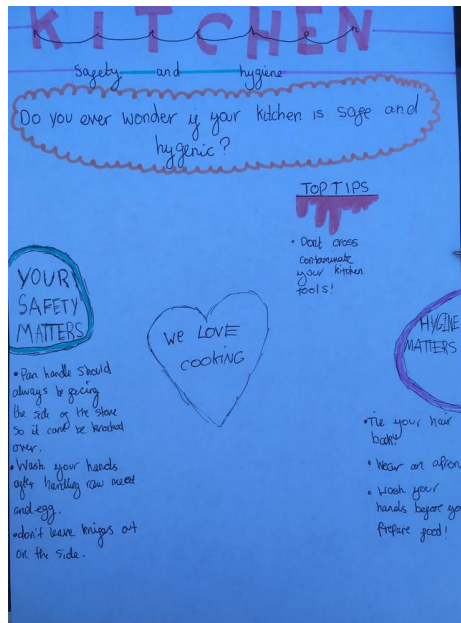 KITCHEN
Safety and hygiene
Do you ever wonder if your kitchen is safe and
hygenic?
TOP TIPS
• Dont cross
contaminate
your kitchen
tools!
YOUR
SAFETY
MATTERS
• Pan handle should
always be facing
the side of the stove
so it cant be knocked
over.
• Wash your hands
after handling raw meat
and egg.
• don't leave knifes out
on the side.
WE LOVE
COOKING
HYGINE
MATTERS
• Tie your hair
back!
• Wear an apron
• Wash your
hands before you
prepare food!